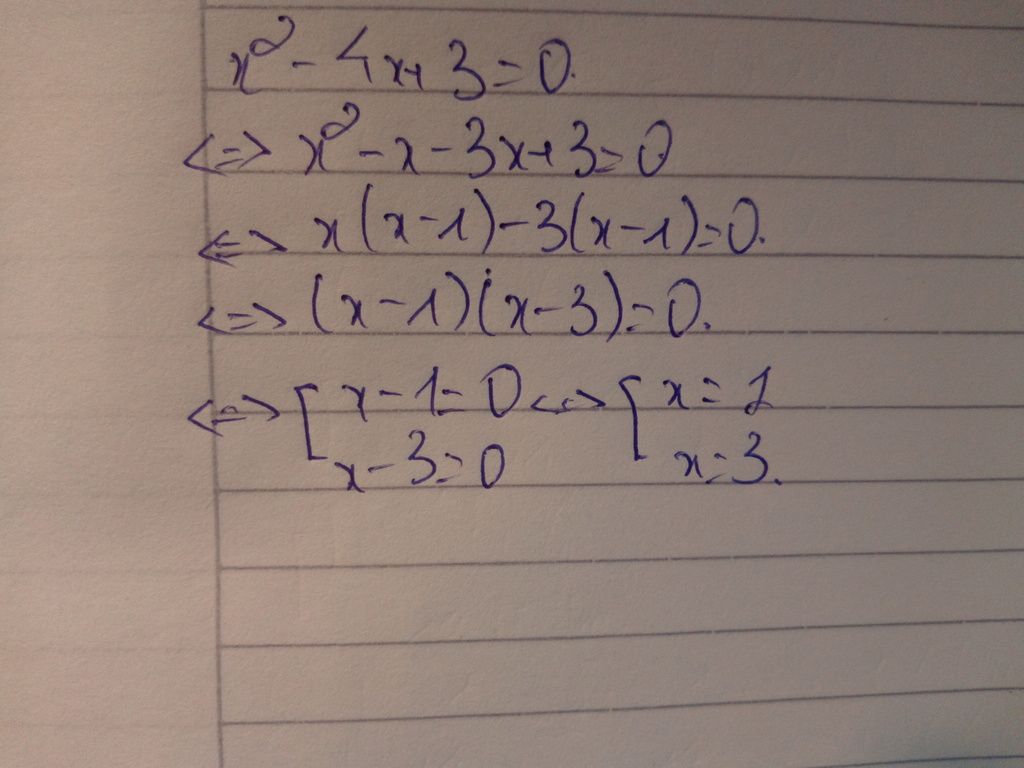 x² - 4x + 3 = 0.
<=> x² - x - 3x + 3 = 0
<=> x(x-1) - 3(x-1) = 0.
<=> (x-1)(x-3) = 0.
<=> [ x - 1 = 0 <=> [ x = 1
x - 3 = 0 x = 3.